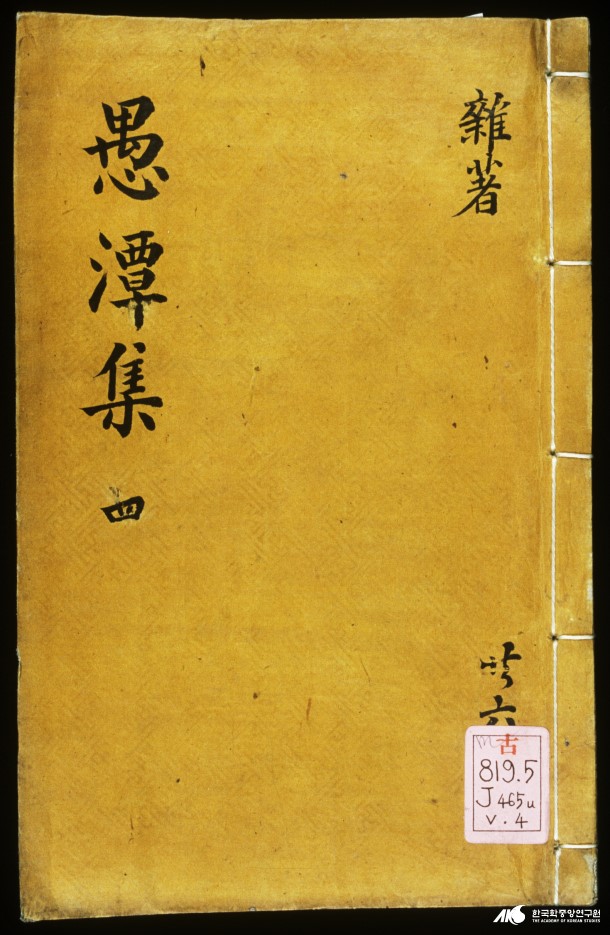 雜著
六
愚潭集 四
古
819.5
J465u
v.4
한국학중앙연구원
THE ACADEMY OF KOREAN STUDIES